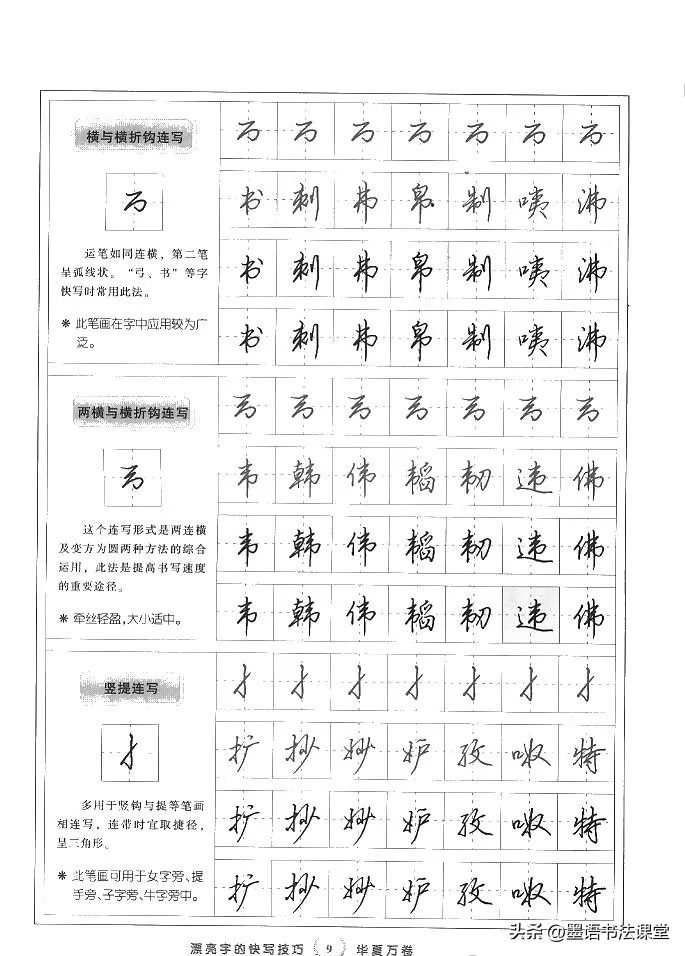 横与横折钩连写
运笔如同连横，第二笔
呈弧线状。“弓、书”等字
快写时常用此法。
* 此笔画在字中应用较为广
泛。
书 刺 帛 制 咦 沸
书 刺 帛 制 咦 沸
书 刺 帛 制 咦 沸
两横与横折钩连写
这个连写形式是两连横
及变方为圆两种方法的综合
运用，此法是提高书写速度
的重要途径。
* 牵丝轻盈，大小适中。
韦 韩 伟 韬 韧 违 佛
韦 韩 伟 韬 韧 违 佛
韦 韩 伟 韬 韧 违 佛
竖提连写
多用于竖钩与提等笔画
相连写，连带时宜取捷径，
呈三角形。
* 此笔画可用于女字旁、提
手旁、子字旁、牛字旁中。
扩 抄 妙 妒 孜 特
扩 抄 妙 妒 孜 特
扩 抄 妙 妒 孜 特
漂亮字的快写技巧 9 华夏万卷
头条 @墨语书法课堂